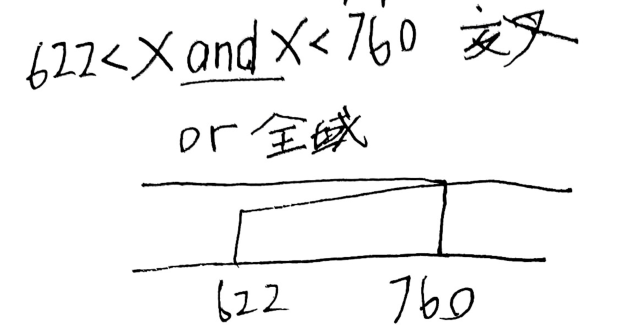 622<X and X<760 交叉
or 全域
622 760